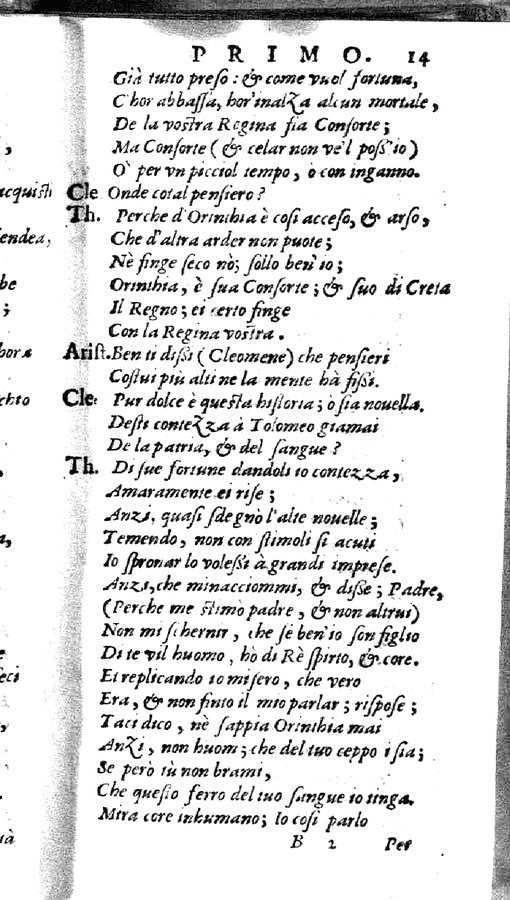 PRIMO. 14
Già tutto preso: & come vuol fortuna,
C'hor abbassa, hor'inalza alcun mortale,
De la vostra Regina sia Consorte;
Ma Consorte (& celar non ve'l poss'io)
O' per vn picciol tempo, ò con inganno.
Cle Onde cotal pensiero?
Th. Perche d'Orinthia è cosi acceso, & arso,
Che d'altra arder non puote;
Nè finge seco nò; sollo ben'io;
Orinthia, è sua Consorte; & suo di Creta
Il Regno; ei certo finge
Con la Regina vostra.
Arist. Ben ti dissi (Cleomene) che pensieri
Costui più alti ne la mente hà fissi.
Cle: Pur dolce è questa historia; ò sia nouella.
Desti contezza à Tolomeo giamai
De la patria, & del sangue?
Th. Di sue fortune dandoli io contezza,
Amaramente ei rise;
Anzi, quasi sdegnò l'alte nouelle;
Temendo, non con stimoli si acuti
Io spronar lo volessi à grandi imprese.
Anzi, che minacciommi, & disse; Padre,
(Perche me stimò padre, & non altrui)
Non mi schernir, che se ben'io son figlio
Di te vil huomo, hò di Rè spirto, & core.
Et replicando io misero, che vero
Era, & non finto il mio parlar; rispose;
Taci dico, nè sappia Orinthia mai
Anzi, non huom; che del tuo ceppo i sia;
Se però tù non brami,
Che questo ferro del tuo sangue io tinga.
Mira core inhumano; Io cosi parlo
B 2 Per
acquisti
endea,
be
;
hora
chio